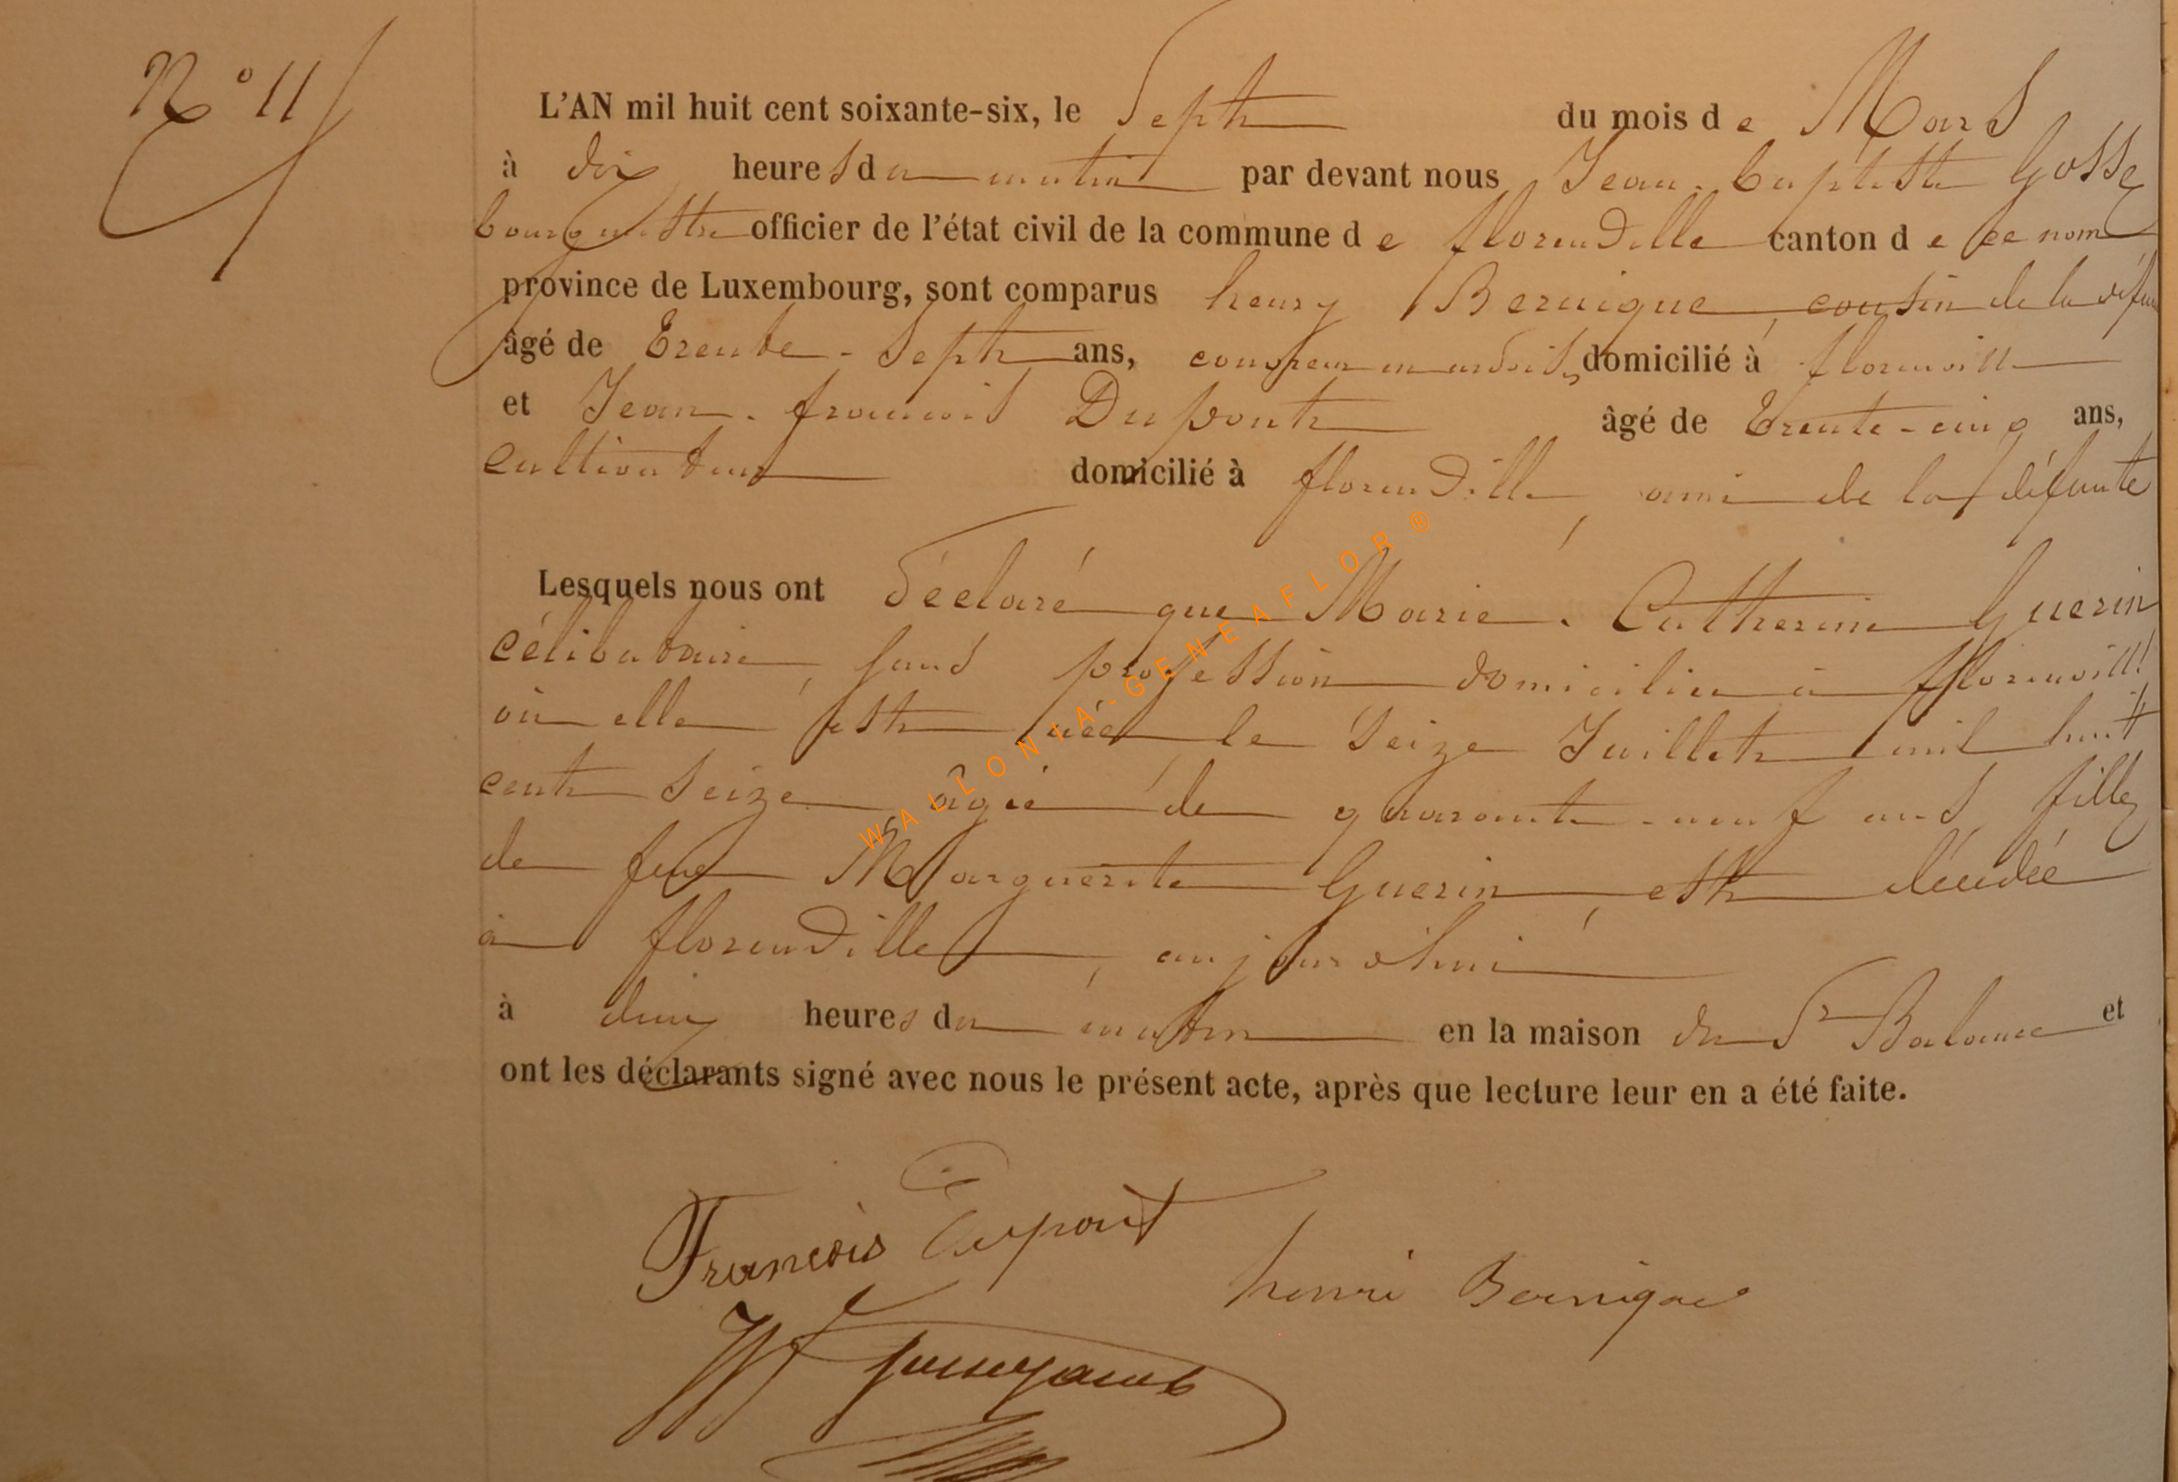 N° 11
L'AN mil huit cent soixante-six, le Sept du mois de Mars
à dix heures du matin par devant nous Jean-baptiste Gosse
bourgmestre officier de l'état civil de la commune de florenville canton de ce nom
province de Luxembourg, sont comparus henry Bernique cousin de la défunte
âgé de Trente-Sept ans, couvreur en ardoises, domicilié à florenville
et Jean-francois Dupont âgé de Trente-cinq ans,
cultivateur domicilié à florenville, ami de la défunte
Lesquels nous ont déclaré que Marie-Catherine Guerin
célibataire, sans profession domiciliée à florenville
où elle est née, le Seize Juillet mil huit
cent Seize, âgée de quarante-neuf ans, fille
de feue Marguerite Guerin, est décédée
à florenville, aujourd'hui
à deux heures du matin en la maison du Sr Balance et
ont les déclarants signé avec nous le présent acte, après que lecture leur en a été faite.
François Dupont
henri Bernique
WALLONIA-GENEAFLOR ®